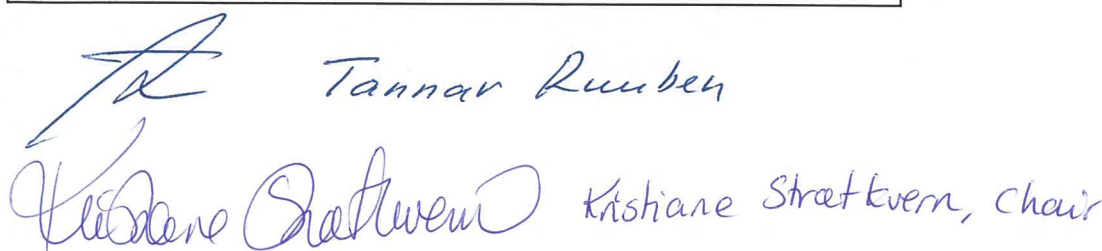 Tannar Ruuben
Kristiane Strætkvern Kristiane Strætkvern, Chair